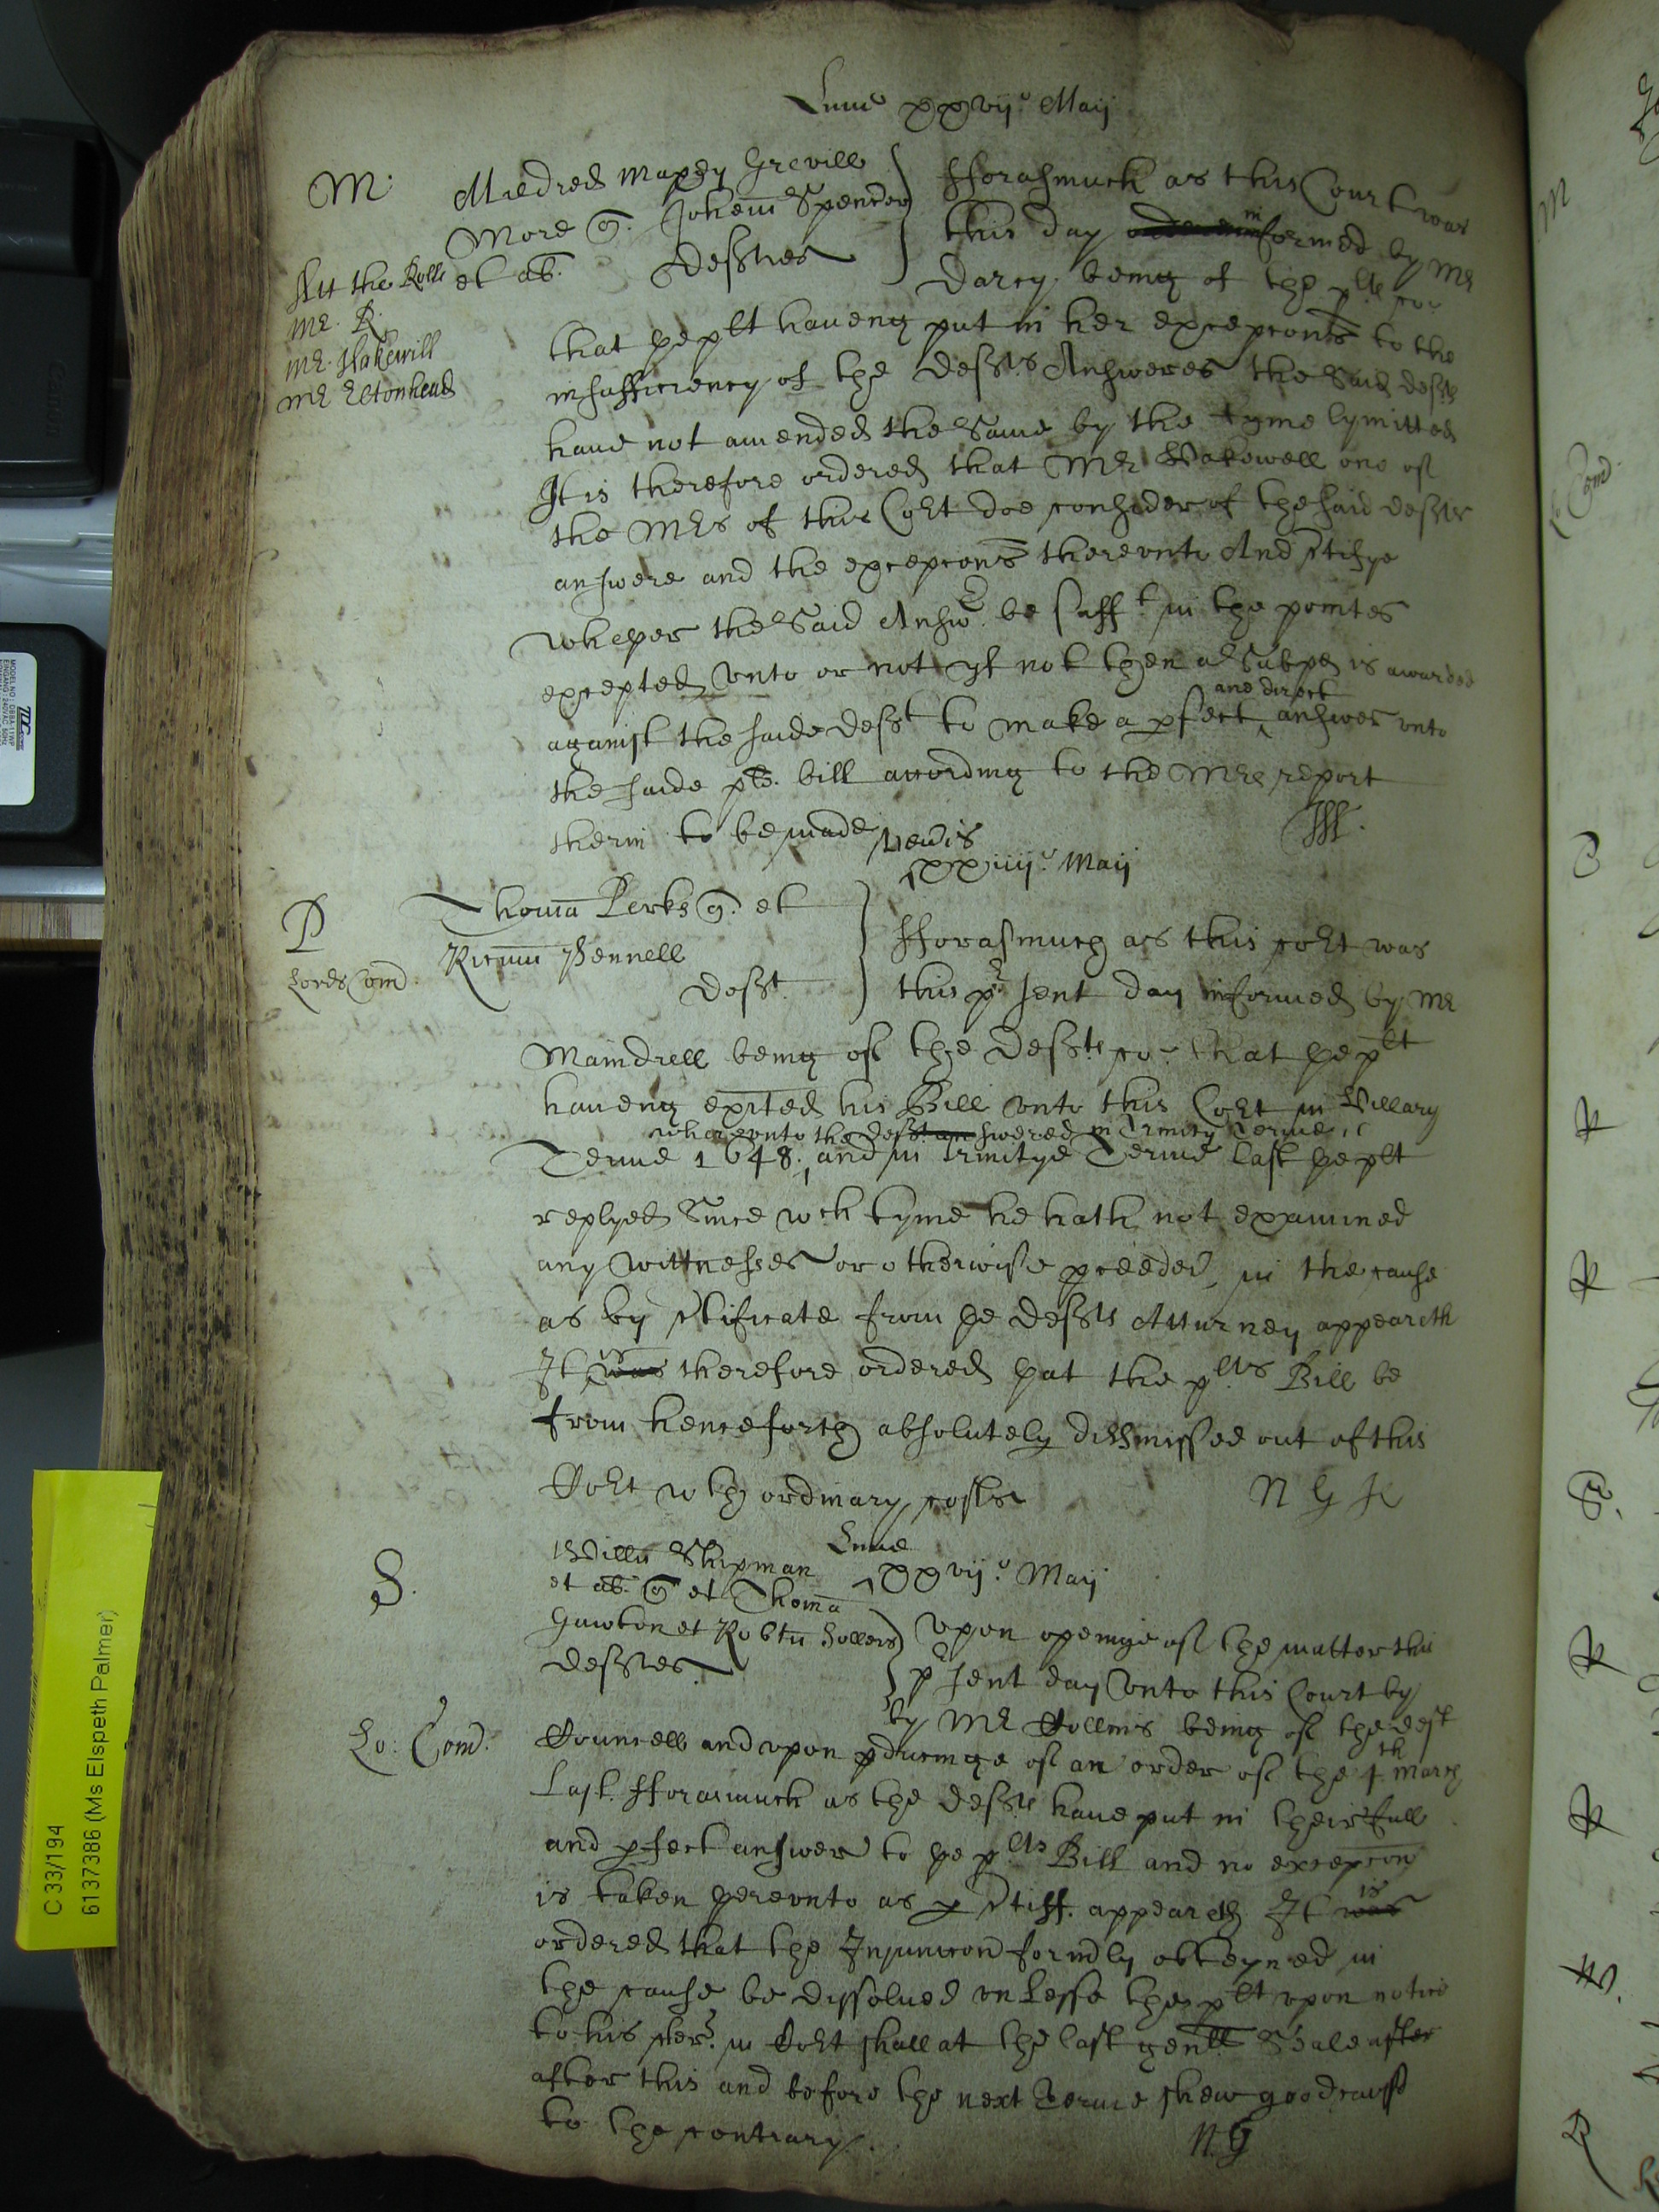 Lune xxvij° Maij
M. Mildred Maxey Grevill
More q. Johem Spencer
et ab. Defftes
fforasmuch as this Court was
this day informed by Mr
Darcy being of the plts co
Att the Rolls
Mr. R.
Mr. Hakewill
Mr Eltonhead
that þe plt haveng put in her excepcons to the
insufficiency of the Deffts Answeres the said defts
have not amended the same by the tyme lymitted
It is therefore ordered that Mr Hakewell one of
the Mrs of this Cort doe consider of the said deffts
answere and the excepcons thereunto And ctifye
whether the said Answ. be sufft in the pointes
excepted unto or not yf not then a Subpe is awarded
against the saide defft to make a pfect and direct answer unto
the saide plts. bill according to the Mrs report
therin to be made
Jovis
xxiiij° Maij
P
Lords Com.
Thoma Perks q. et
Ricum Pennell
Defft.
fforasmuch as this cort was
this psent day informed by Mr
Maindrell being of the Deffts co that þe plt
haveng exited his Bill unto this Cort in Hillary
whereunto the defft answered in Trinity Terme
Terme 1648. and in Trinitye Terme last þe plt
replyed Since wch tyme he hath not examined
any wittnesses or otherwise pceeded in the cause
as by ctificate from þe deffts Atturney appeareth
It was is therefore ordered þat the plts Bill be
from henceforth absolutely dismissed out of this
Cort wth ordinary costs
N G
S.
Lune
xxvij° Maij
Willm Shipman
et ab. q et Thoma
Gawton et Robtu Sollers
defftes
Upon openinge of the matter this
psent day unto this Court by
by Mr Collins being of the deft
Lo: Com.
Councell and upon pducinge of an order of the 4th March
last. fforasmuch as the deffts have put in their full
and pfect answer to þe plts Bill and no excepcon
is taken þereunto as p ctiff. appeareth It was is
ordered that the Injunccon formdly obteyned in
the cause be dissolved unlesse the plt upon notice
to his cler. in Cort shall at the last genll Seale after
after this and before the next Terme shew good cause
to the contrary.
N. G
C 33/194
6137386 (Ms Elspeth Palmer)